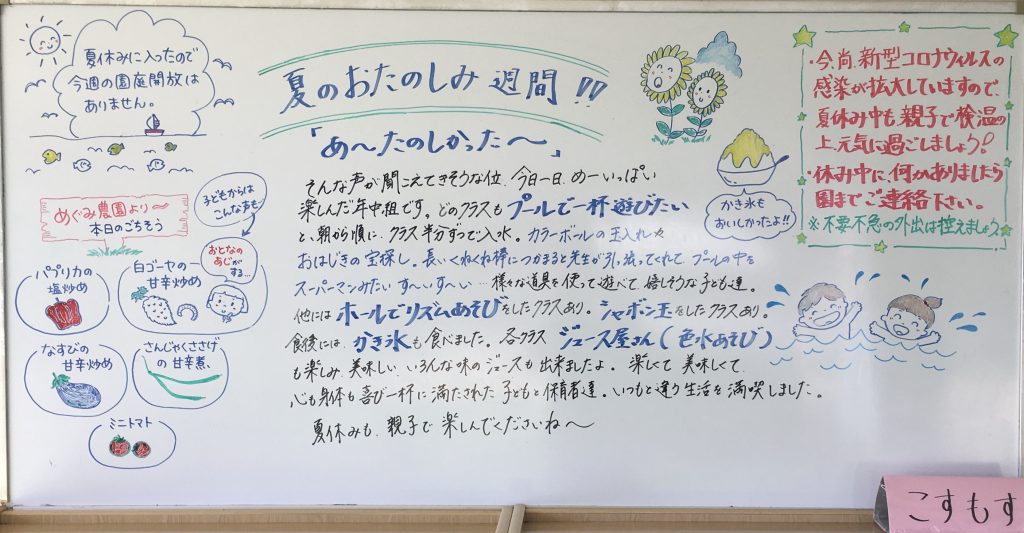 夏休みに入ったので
今週の園庭開放は
ありません。
めぐみ農園より〜
本日のごちそう
子どもからは
こんな声も
おとなの
あじがする…
パプリカの
塩炒め
白ゴーヤの
甘辛炒め
なすびの
甘辛炒め
さんじゃくささげ
の甘辛煮、
ミニトマト
夏のおたのしみ週間!!
「あ〜たのしかった〜」
そんな声が聞こえてきそうな位、今日一日、めーいっぱい
楽しんだ年中組です。どのクラスもプールで一杯遊びたい
と、朝から順に、クラス半分ずつで入水。カラーボールの玉入れや
おはじきの宝探し。長いくねくね棒につかまると先生が引っ張ってくれて プールの中を
スーパーマンみたい す〜いす〜い… 様々な道具を使って遊べて 嬉しそうな子ども達。
他にはホールでリズムあそびをしたクラスあり。シャボン玉をしたクラスあり。
食後には、かき氷も食べました。各クラス ジュース屋さん(色水あそび)
も楽しみ、美味しい、いろんな味のジュースも出来ましたよ。楽しくて 美味しくて、
心も身体も喜び一杯に満たされた子どもと保育者達。いつもと違う生活を満喫しました。
夏休みも、親子で楽しんでくださいね〜
かき氷も
おいしかったよ!!
・今、尚、新型コロナウィルスの
感染が拡大していますので、
夏休み中も、親子で検温の
上、元気に過ごしましょう!
・休み中に、何かありましたら
園までご連絡下さい。
※不要不急の外出は控えましょう。
こすもす